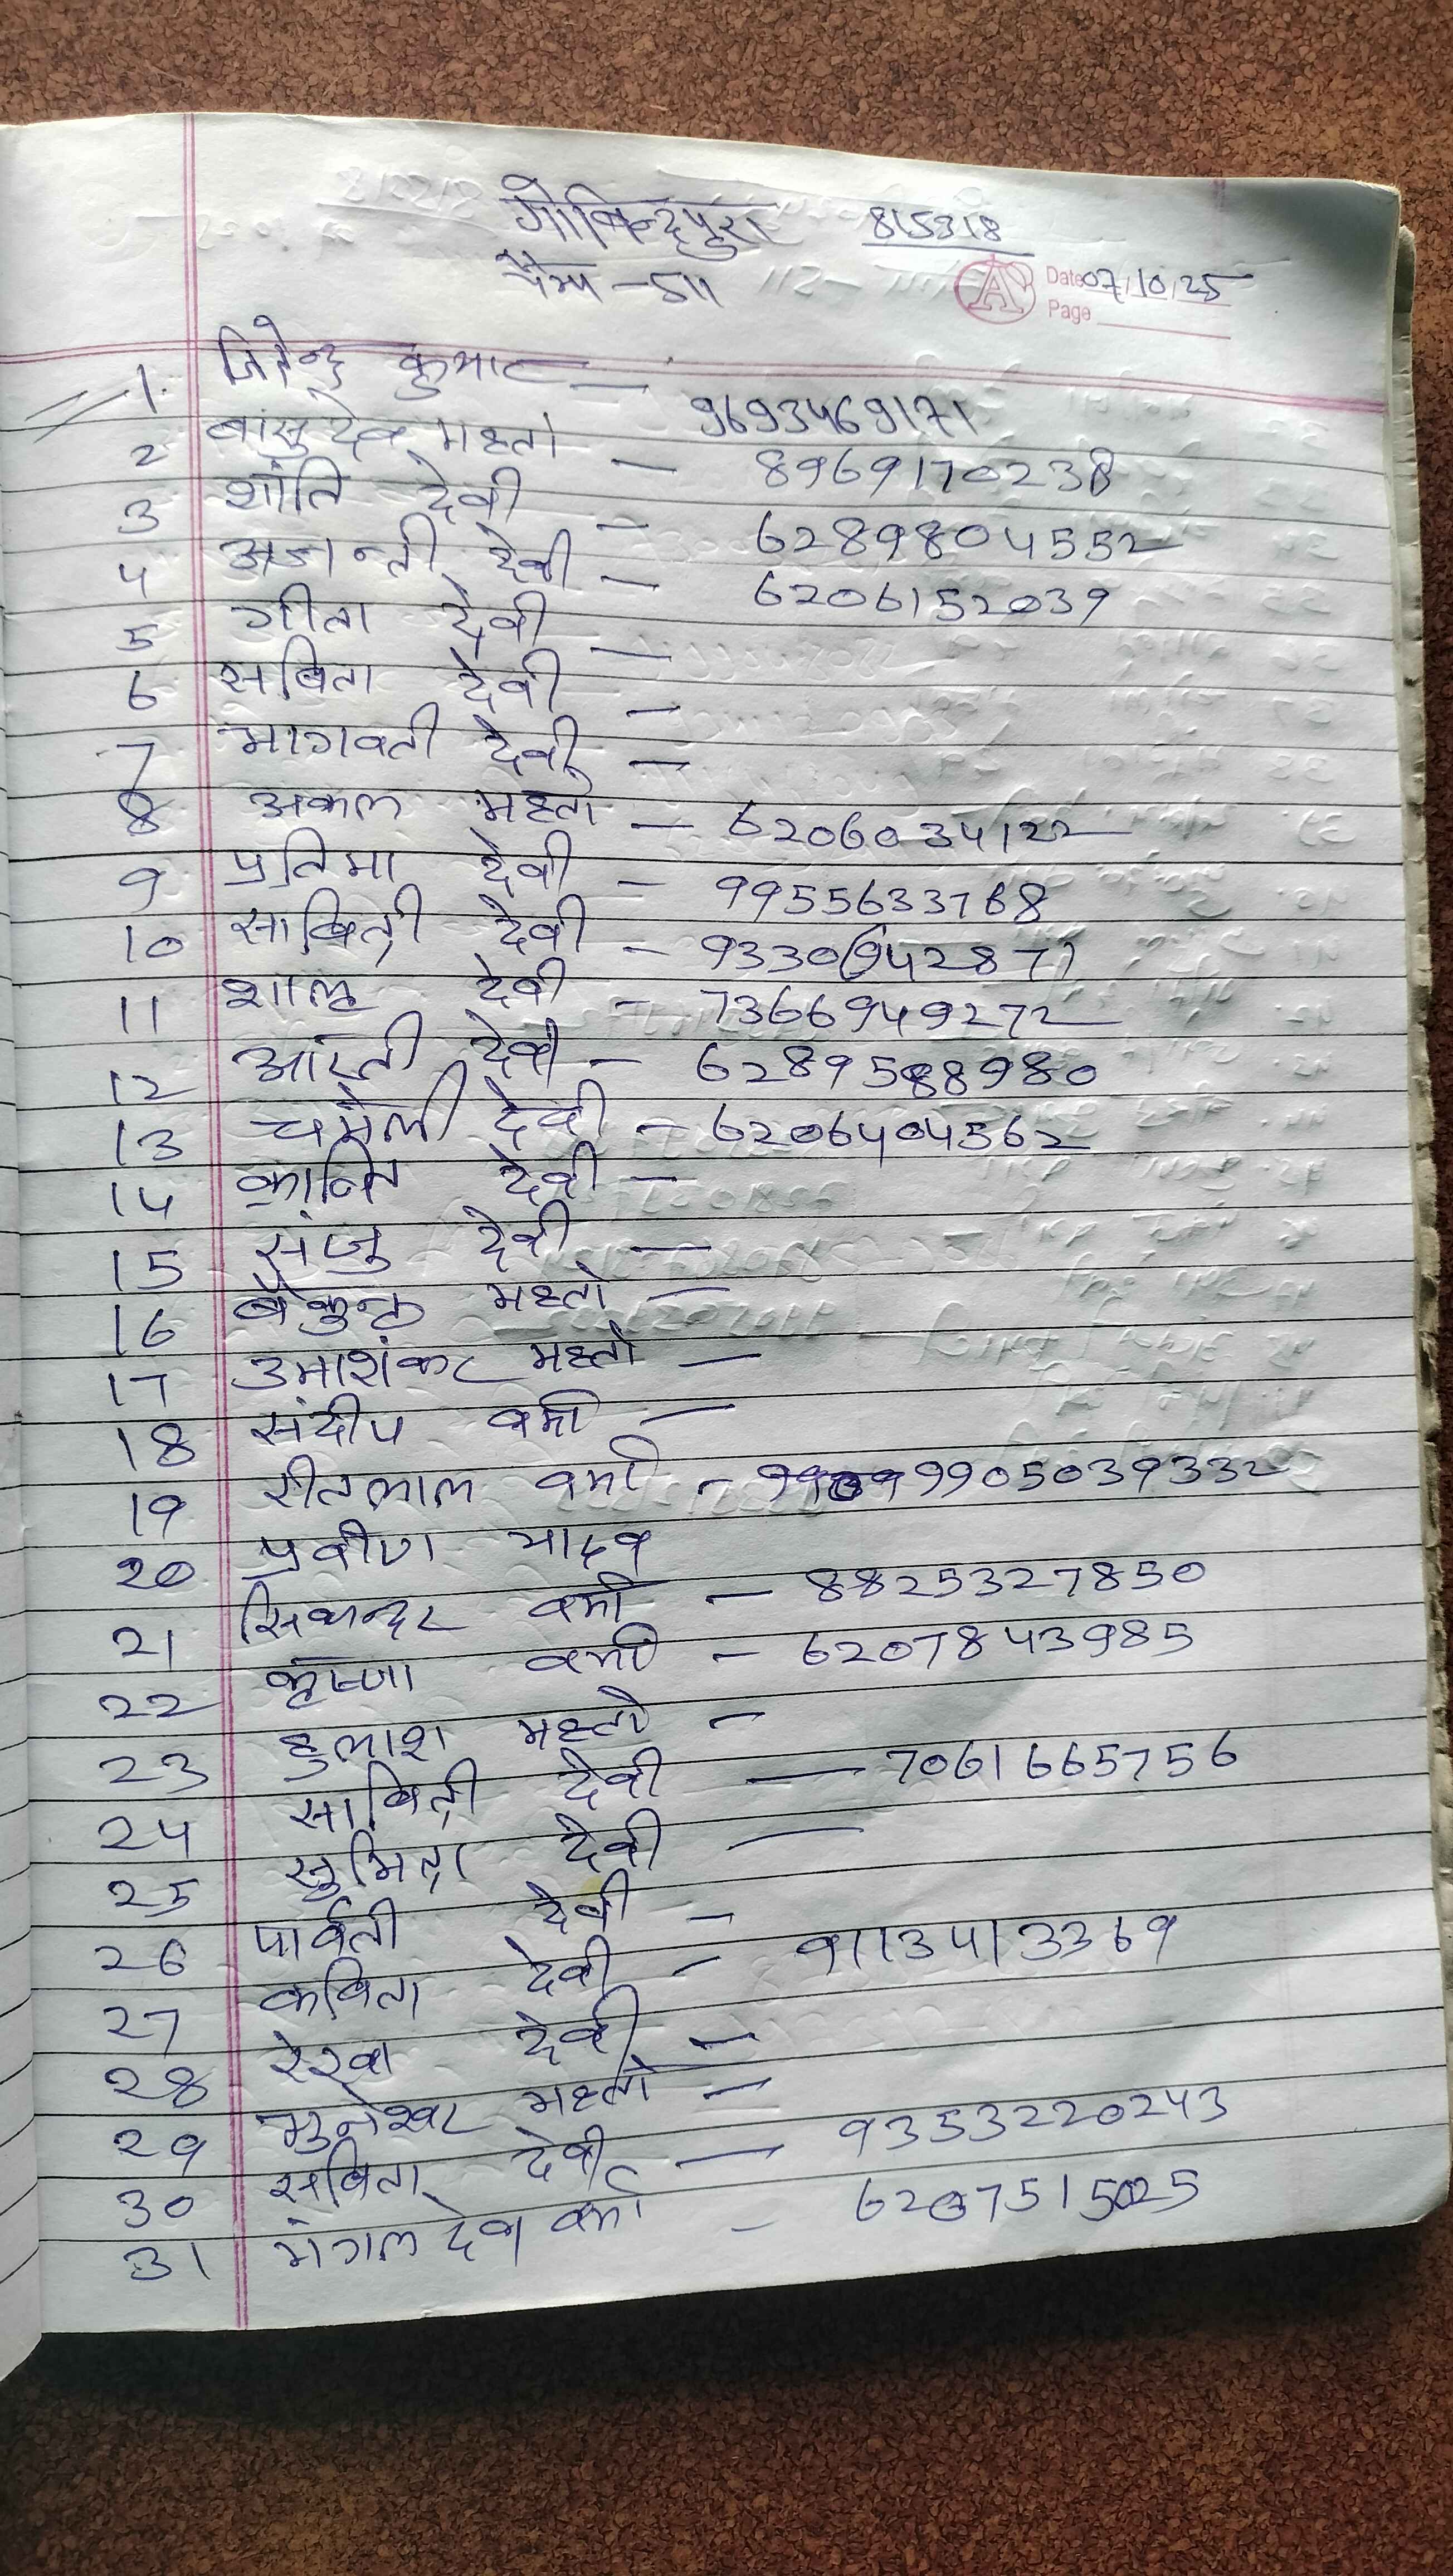 गोबिन्दपुरा 815318
कैम्प - 511
Date 07/10/25
Page
1. जितेन्द्र कुमार - 9693469171
2 बासुदेव महतो - 8969170238
3 शांति देवी - 6289804552
4 अजन्ती देवी - 6206152039
5 गीता देवी -
6 सबिता देवी -
7 भागवती देवी -
8 अकल महतो - 6206034122
9 प्रतिमा देवी - 9955633768
10 साबित्री देवी - 9330942871
11 शालू देवी - 7366949272
12 आरती देवी - 6289588980
13 चमेली देवी - 6206404562
14 देवी -
15 संजु देवी -
16 बैकुन्ठ महतो -
17 उमाशंकर महतो -
18 संदीप वर्मा -
19 रीतलाल वर्मा - 9905039332
20 प्रवीण यादव
21 सिकन्दर वर्मा - 8825327850
22 कृष्णा वर्मा - 6207843985
23 हुलाश महतो -
24 साबित्री देवी - 7061665756
25 सुमित्रा देवी -
26 पार्वती देवी -
27 कबिता देवी - 9113413369
28 रेखा देवी -
29 भुनेश्वर महतो -
30 सबिता देवी - 9353220243
31 मंगल देव वर्मा - 6207515025